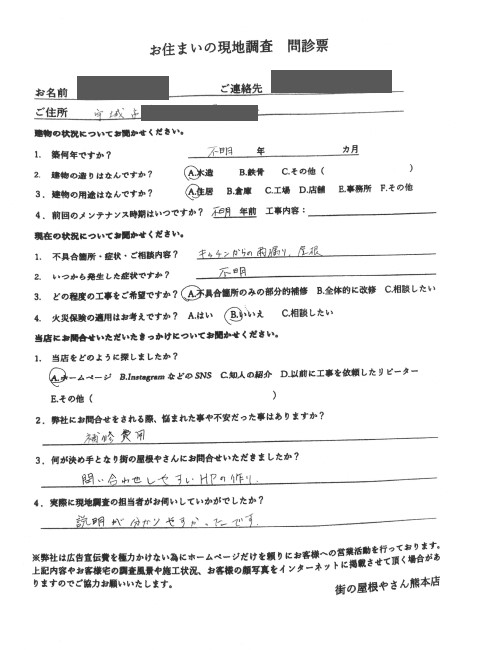 お住まいの現地調査 問診票
お名前 ご連絡先
ご住所 宇城市
建物の状況についてお聞かせください。
1. 築何年ですか? 不明 年 カ月
2. 建物の造りはなんですか? A.木造 B.鉄骨 C.その他( )
3. 建物の用途はなんですか? A.住居 B.倉庫 C.工場 D.店舗 E.事務所 F.その他
4. 前回のメンテナンス時期はいつですか? 不明 年前 工事内容:
現在の状況についてお聞かせください。
1. 不具合箇所・症状・ご相談内容? キッチンからの雨漏り、屋根
2. いつから発生した症状ですか? 不明
3. どの程度の工事をご希望ですか? A.不具合箇所のみの部分的補修 B.全体的に改修 C.相談したい
4. 火災保険の適用はお考えですか? A.はい B.いいえ C.相談したい
当店にお問合せいただいたきっかけについてお聞かせください。
1. 当店をどのように探しましたか?
A.ホームページ B.Instagram などの SNS C.知人の紹介 D.以前に工事を依頼したリピーター
E.その他( )
2. 弊社にお問合せをされる際、悩まれた事や不安だった事はありますか?
補修費用
3. 何が決め手となり街の屋根やさんにお問合せいただきましたか?
問い合わせしやすいHPの作り.
4. 実際に現地調査の担当者がお伺いしていかがでしたか?
説明が分かりやすかったです.
※弊社は広告宣伝費を極力かけない為にホームページだけを頼りにお客様への営業活動を行っております。
上記内容やお客様宅の調査風景や施工状況、お客様の顔写真をインターネットに掲載させて頂く場合があ
りますのでご協力お願いいたします。
街の屋根やさん熊本店